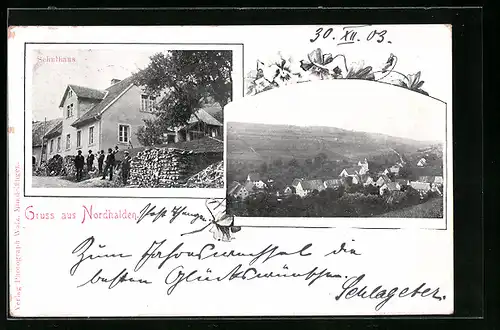 30. XII. 03.
Schulhaus
Gruss aus Nordhalden
Zum Jahreswechsel die
besten Glückwünschen.
Schlageter.
Verlag Photograph Walz, Nordhalden.